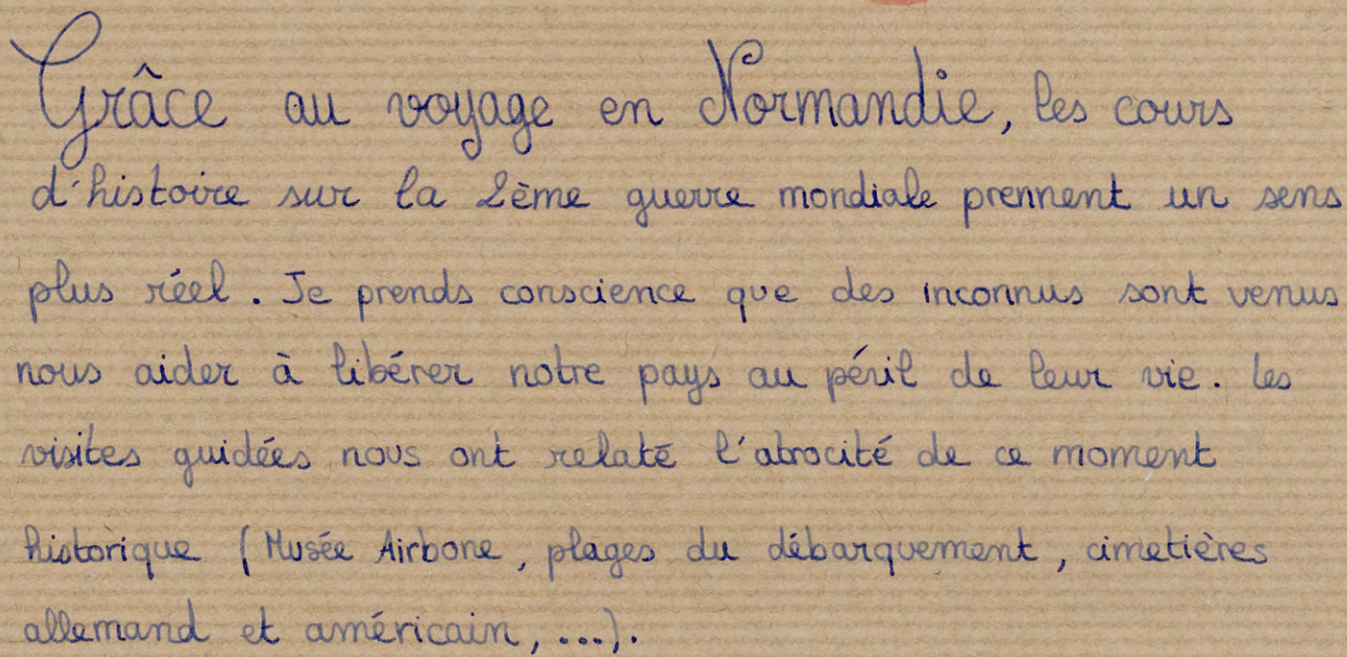 Grâce au voyage en Normandie, les cours
d'histoire sur la 2ème guerre mondiale prennent un sens
plus réel. Je prends conscience que des inconnus sont venus
nous aider à libérer notre pays au péril de leur vie. Les
visites guidées nous ont relaté l'atrocité de ce moment
historique (Musée Airbone, plages du débarquement, cimetières
allemand et américain, ...).